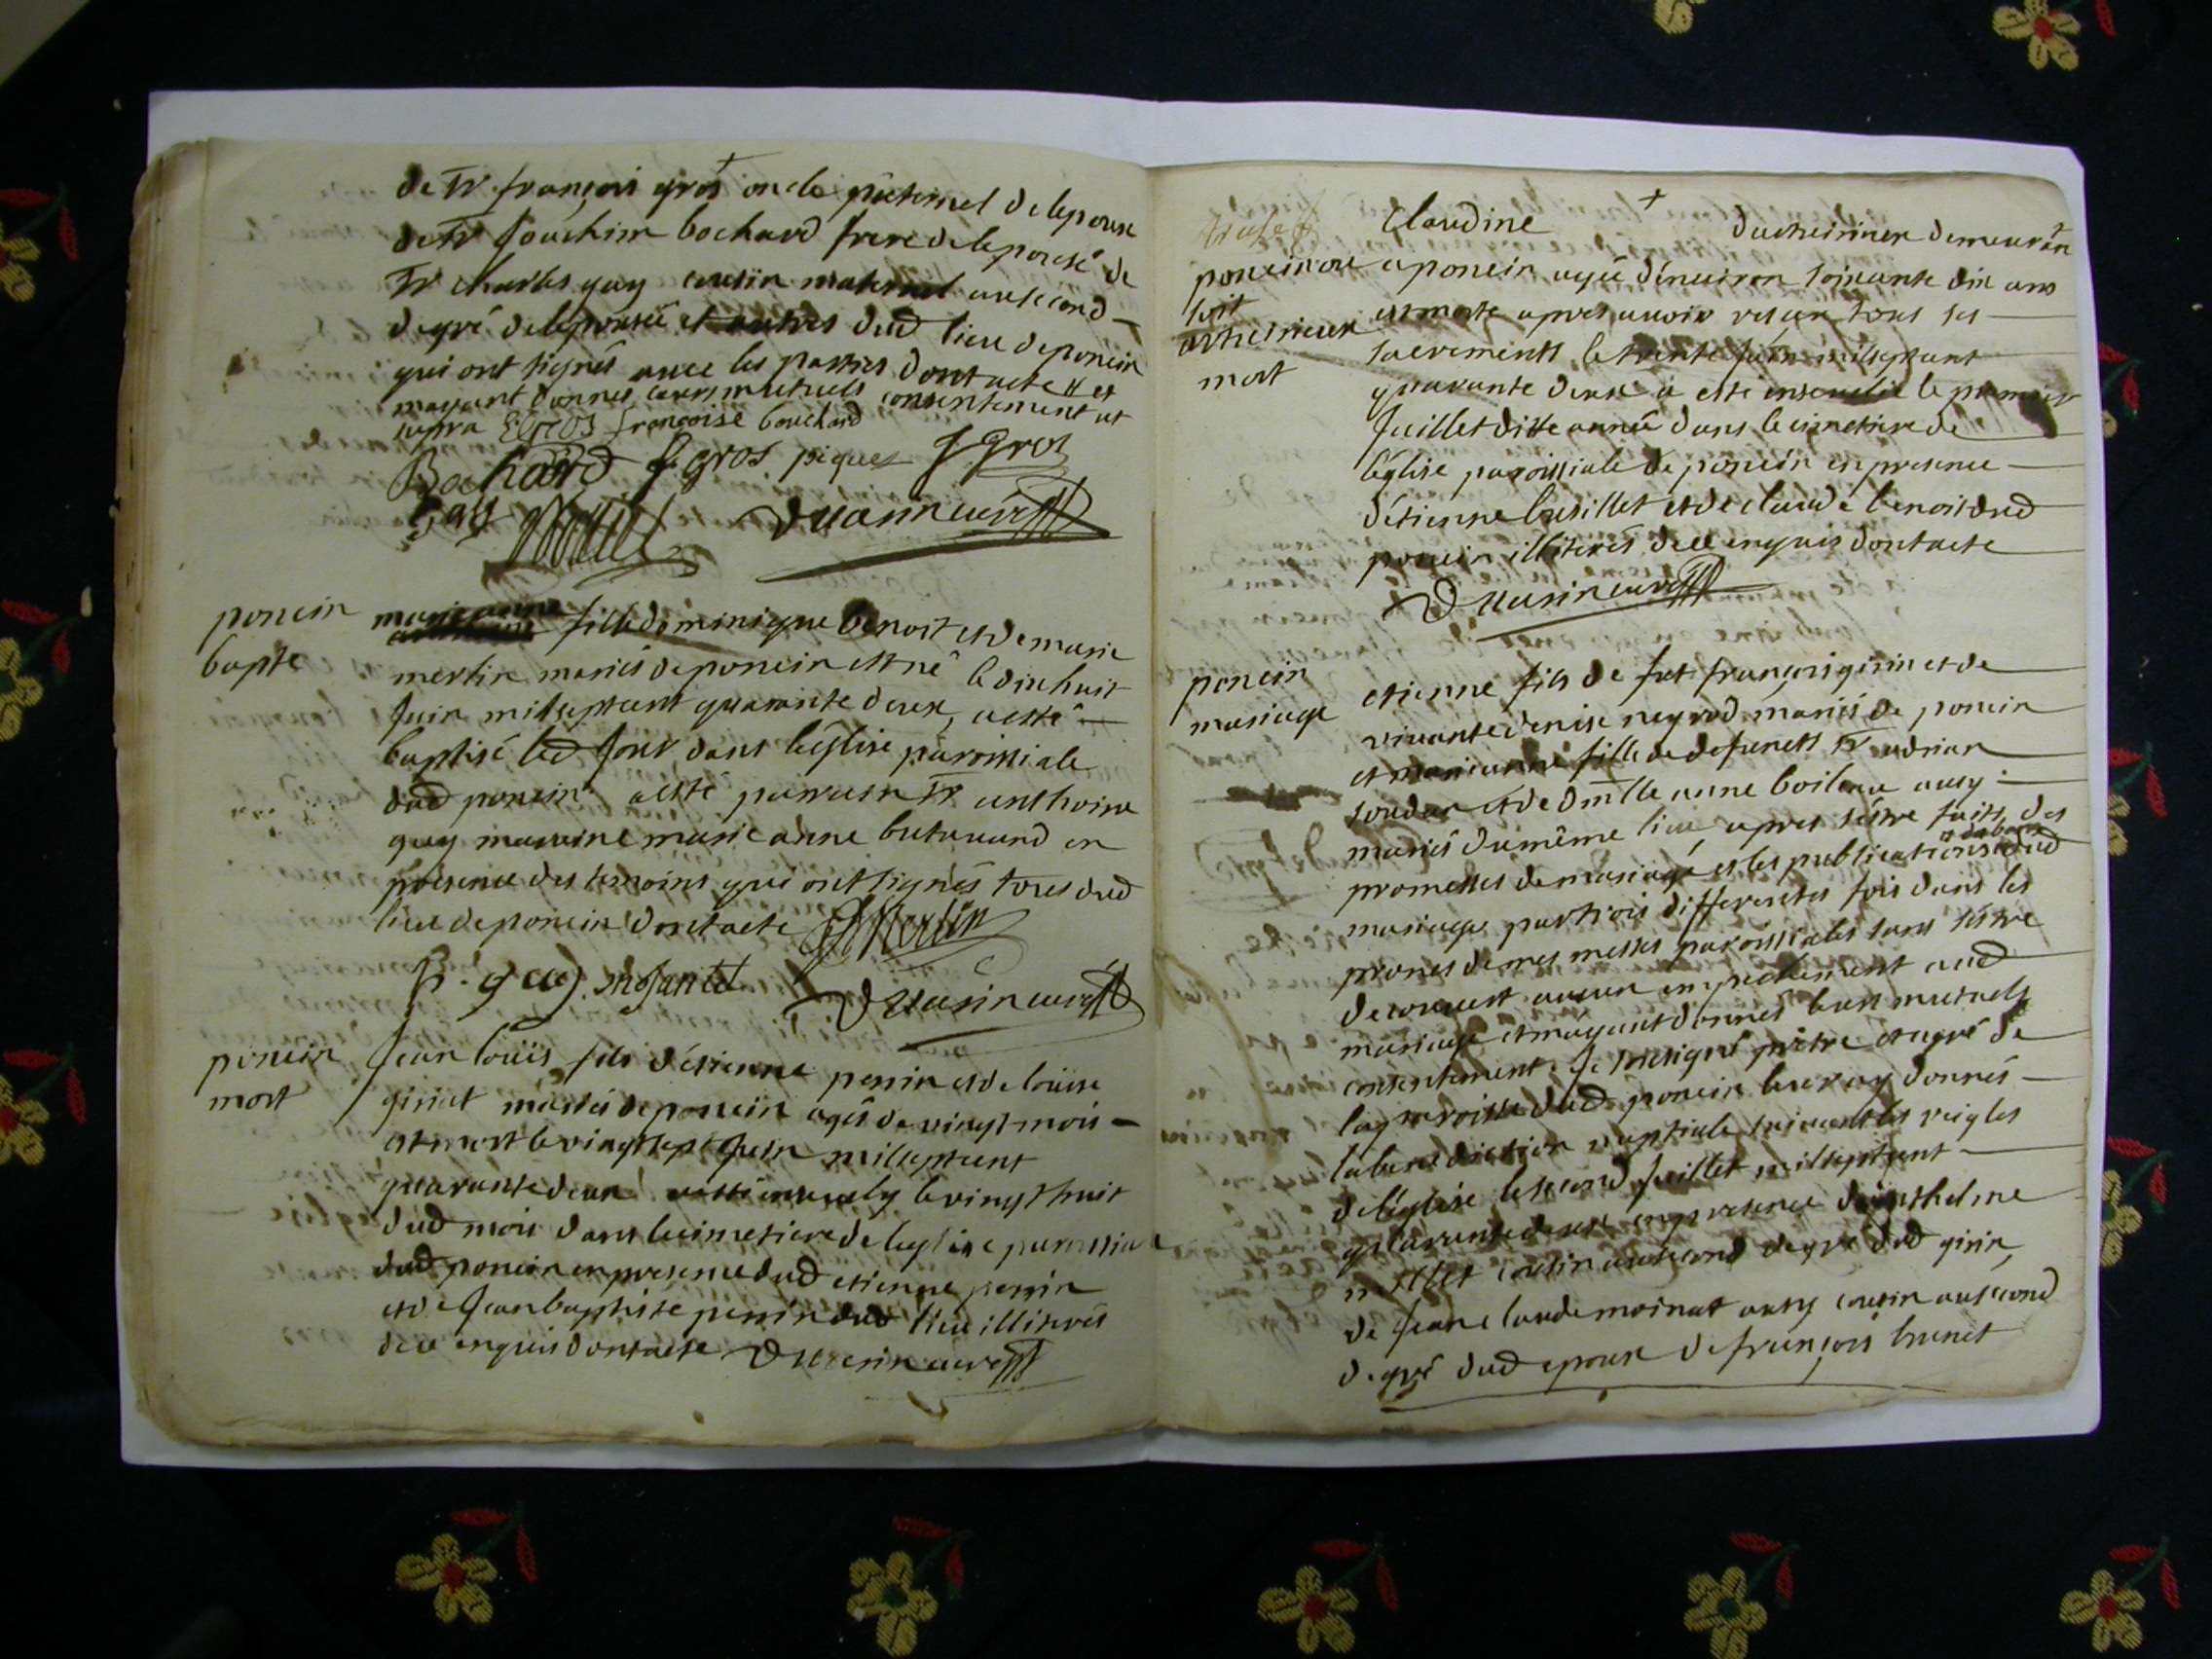 de Sr françois gros oncle paternel de lepouse
de Sr Joachim bochard frere de lepousé de
Sr charles guy cousin maternel au second
degré de lepousée et autres dud lieu de poncin
qui ont signés avec les parties dont acte et
mayant donnes leurs mutuels consentement ut
supra françoise bouchard
Bochard f gros piquet J Gros
Gay Duasin curé
poncin
bapte
marie anne fille dominique benoit et de marie
merlin mariés de poncin est né le dix huit
Juin mil sept cent quarante deux, a esté
baptisé led Jour dans léglise paroissiale
dud poncin a esté parrain Sr anthoine
guy marraine marie anne butavand en
présence des temoins qui ont signés tous dud
lieu de poncin dont acte Merlin
guy Duasin curé
poncin
mort
Jean louïs fils détienne perrin et de loüise
giriat mariés de poncin agés de vingt mois
est mort le vingt sept Juin mil sept cent
quarante deux a esté ensevely le vingt huit
dud mois dans le cimetiere de leglise paroissiale
dud poncin en presence dud etienne perrin
et de Jean baptiste perrin dud lieu illiterés
de ce enquis dont acte Duasin curé
poncin ou
soit
mort
Claudine demeurãn
a poncin agée dénviron soixante dix ans
est morte apres avoir reseu tous ses
sacrements le trente Juin mil sept cent
quarante deux a esté ensevelie le premier
Juillet ditte année dans le cimetiere de
léglise paroissiale de poncin en presence
détienne busillet et de claude benoit dud
poncin illiterés de ce enquis dont acte
Duasin curé
poncin
mariage
etienne fils de fut françois girin et de
vivante denise neyrod mariés de poncin
et marie anne fille de defuncts Sr adrian
soudan et de dmlle anne boileau aussy
mariés du même lieu apres sestre faits des
promesses de mariage et les publications dud
mariage par trois differentes fois dans les
prones de mes messes paroissiales sans sestre
decouvert aucun empechement aud
mariage et mayant donnés leurs mutuels
consentement Je soussigné prêtre et curé de
la paroisse dud poncin leur ay donnés
la benediction nuptiale suivant les reigles
de léglise le second Juillet mil sept cent
quarante deux en presence danthelme
millet cousin au second degré dud girin,
de Jean claude moinat aussy cousin au second
degré dud epoux de françois brunet